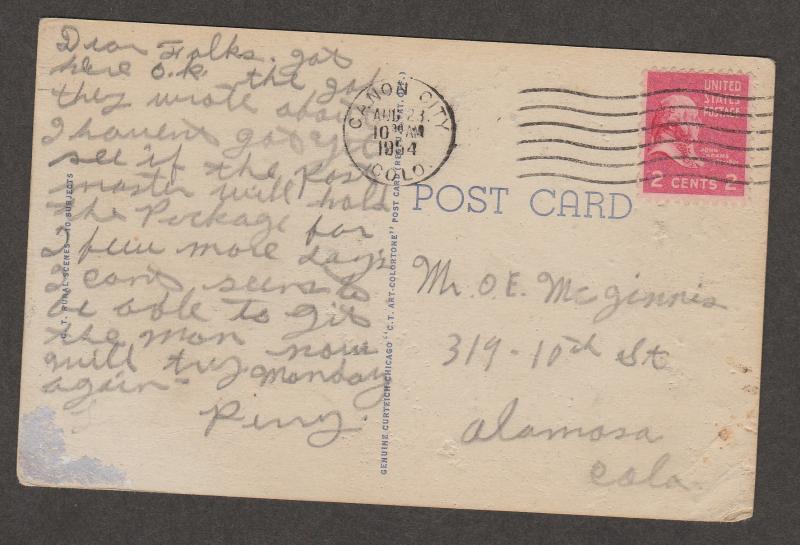 Dear Folks. got
here O.K. the job
they wrote about
I havent got yet
see if the Post
master will hold
the Package for
a few more days
I cant seem to
be able to git
the man now
will try Monday
again-
Perry.
C.T. RURAL SCENES - 10 SUBJECTS
GENUINE CURTEICH-CHICAGO "C.T. ART-COLORTONE" POST CARD (REG. U.S. PAT. OFF.)
CANON CITY
AUG 23
10 30 AM
1954
COLO.
UNITED
STATES
POSTAGE
JOHN
ADAMS
2 CENTS 2
POST CARD
Mr. O.E. McGinnis
319-10th St
Alamosa
Colo.